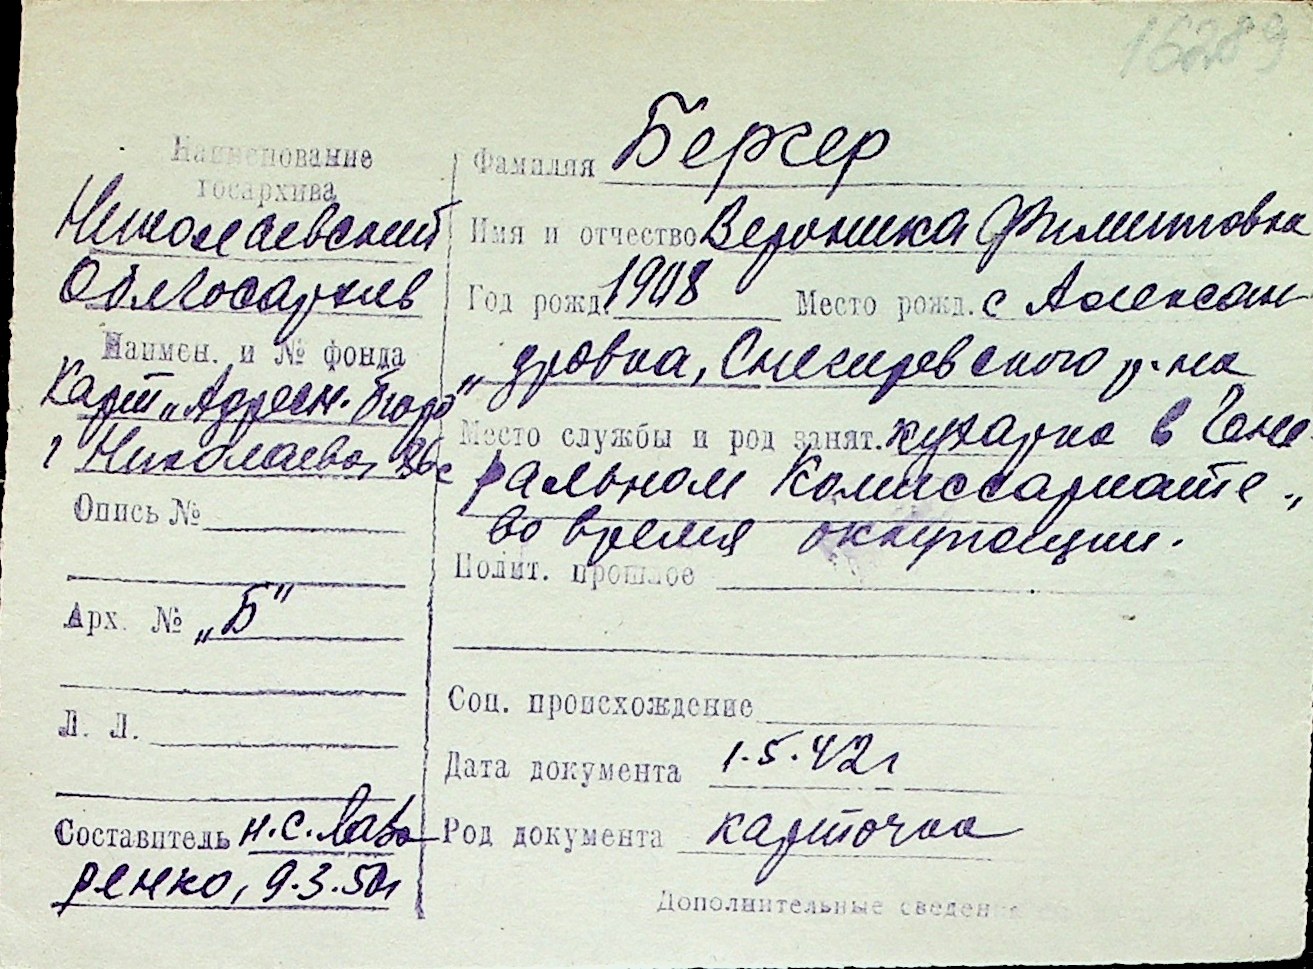 16289
Наименование
госархива
Николаевский
Облгосархив
Наимен. и № фонда
Карт „Адресн. бюро"
г Николаева,
Опись №
Арх. № „Б"
Л. Л.
Составитель Н.С. Лавр
ренко, 9.3.50г
Фамилия Бергер
Имя и отчество Вероника
Год рожд. 1908 Место рожд. с Алексан
дровка, Снегиревского р-на
Место службы и род занят. кухарка в Гене
ральном Комиссариате „
во время оккупации.
Полит. прошлое
Соц. происхождение
Дата документа 1.5.42г
Род документа карточка
Дополнительные сведения